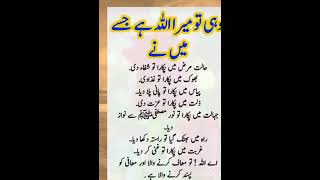 وہی تو میرا اللہ ہے جسے
میں نے
حالت مرض میں پکارا تو شفاء دی۔
بھوک میں پکارا تو غذا دی۔
پیاس میں پکارا تو پانی پلا دیا۔
ذلت میں پکارا تو عزت دی۔
جہالت میں پکارا تو نور مصطفیٰ ﷺ سے نواز
دیا۔
راہ میں بھٹک گیا تو راستہ دکھا دیا۔
غربت میں پکارا تو غنی کر دیا۔
اے اللہ! تو معاف کرنے والا اور معافی کو
پسند کرنے والا ہے۔